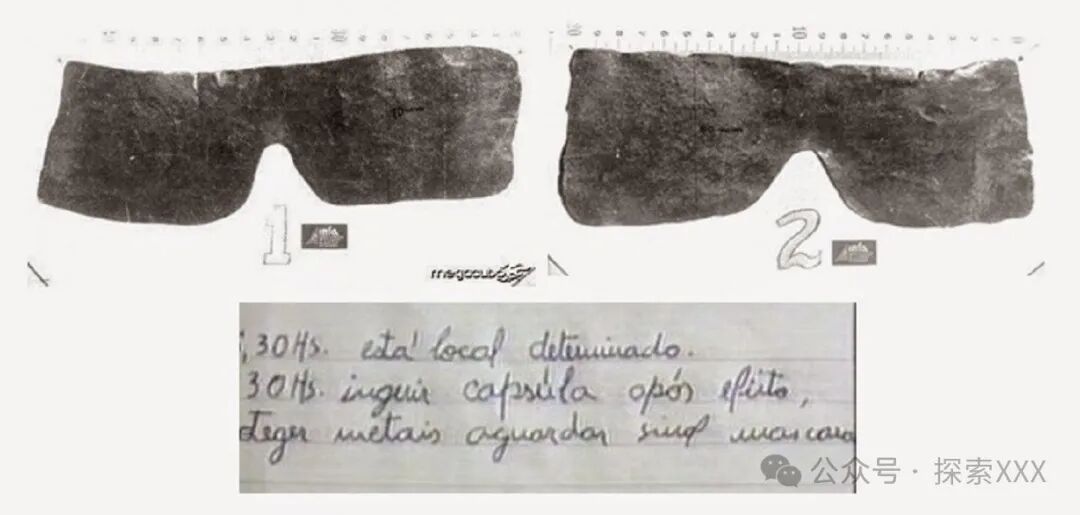 1
2
megacubo
,30 Hs. está local determinado.
30 Hs. inguir capsúla após efeito,
teger metais aguardar sinal mascara
公众号 · 探索XXX